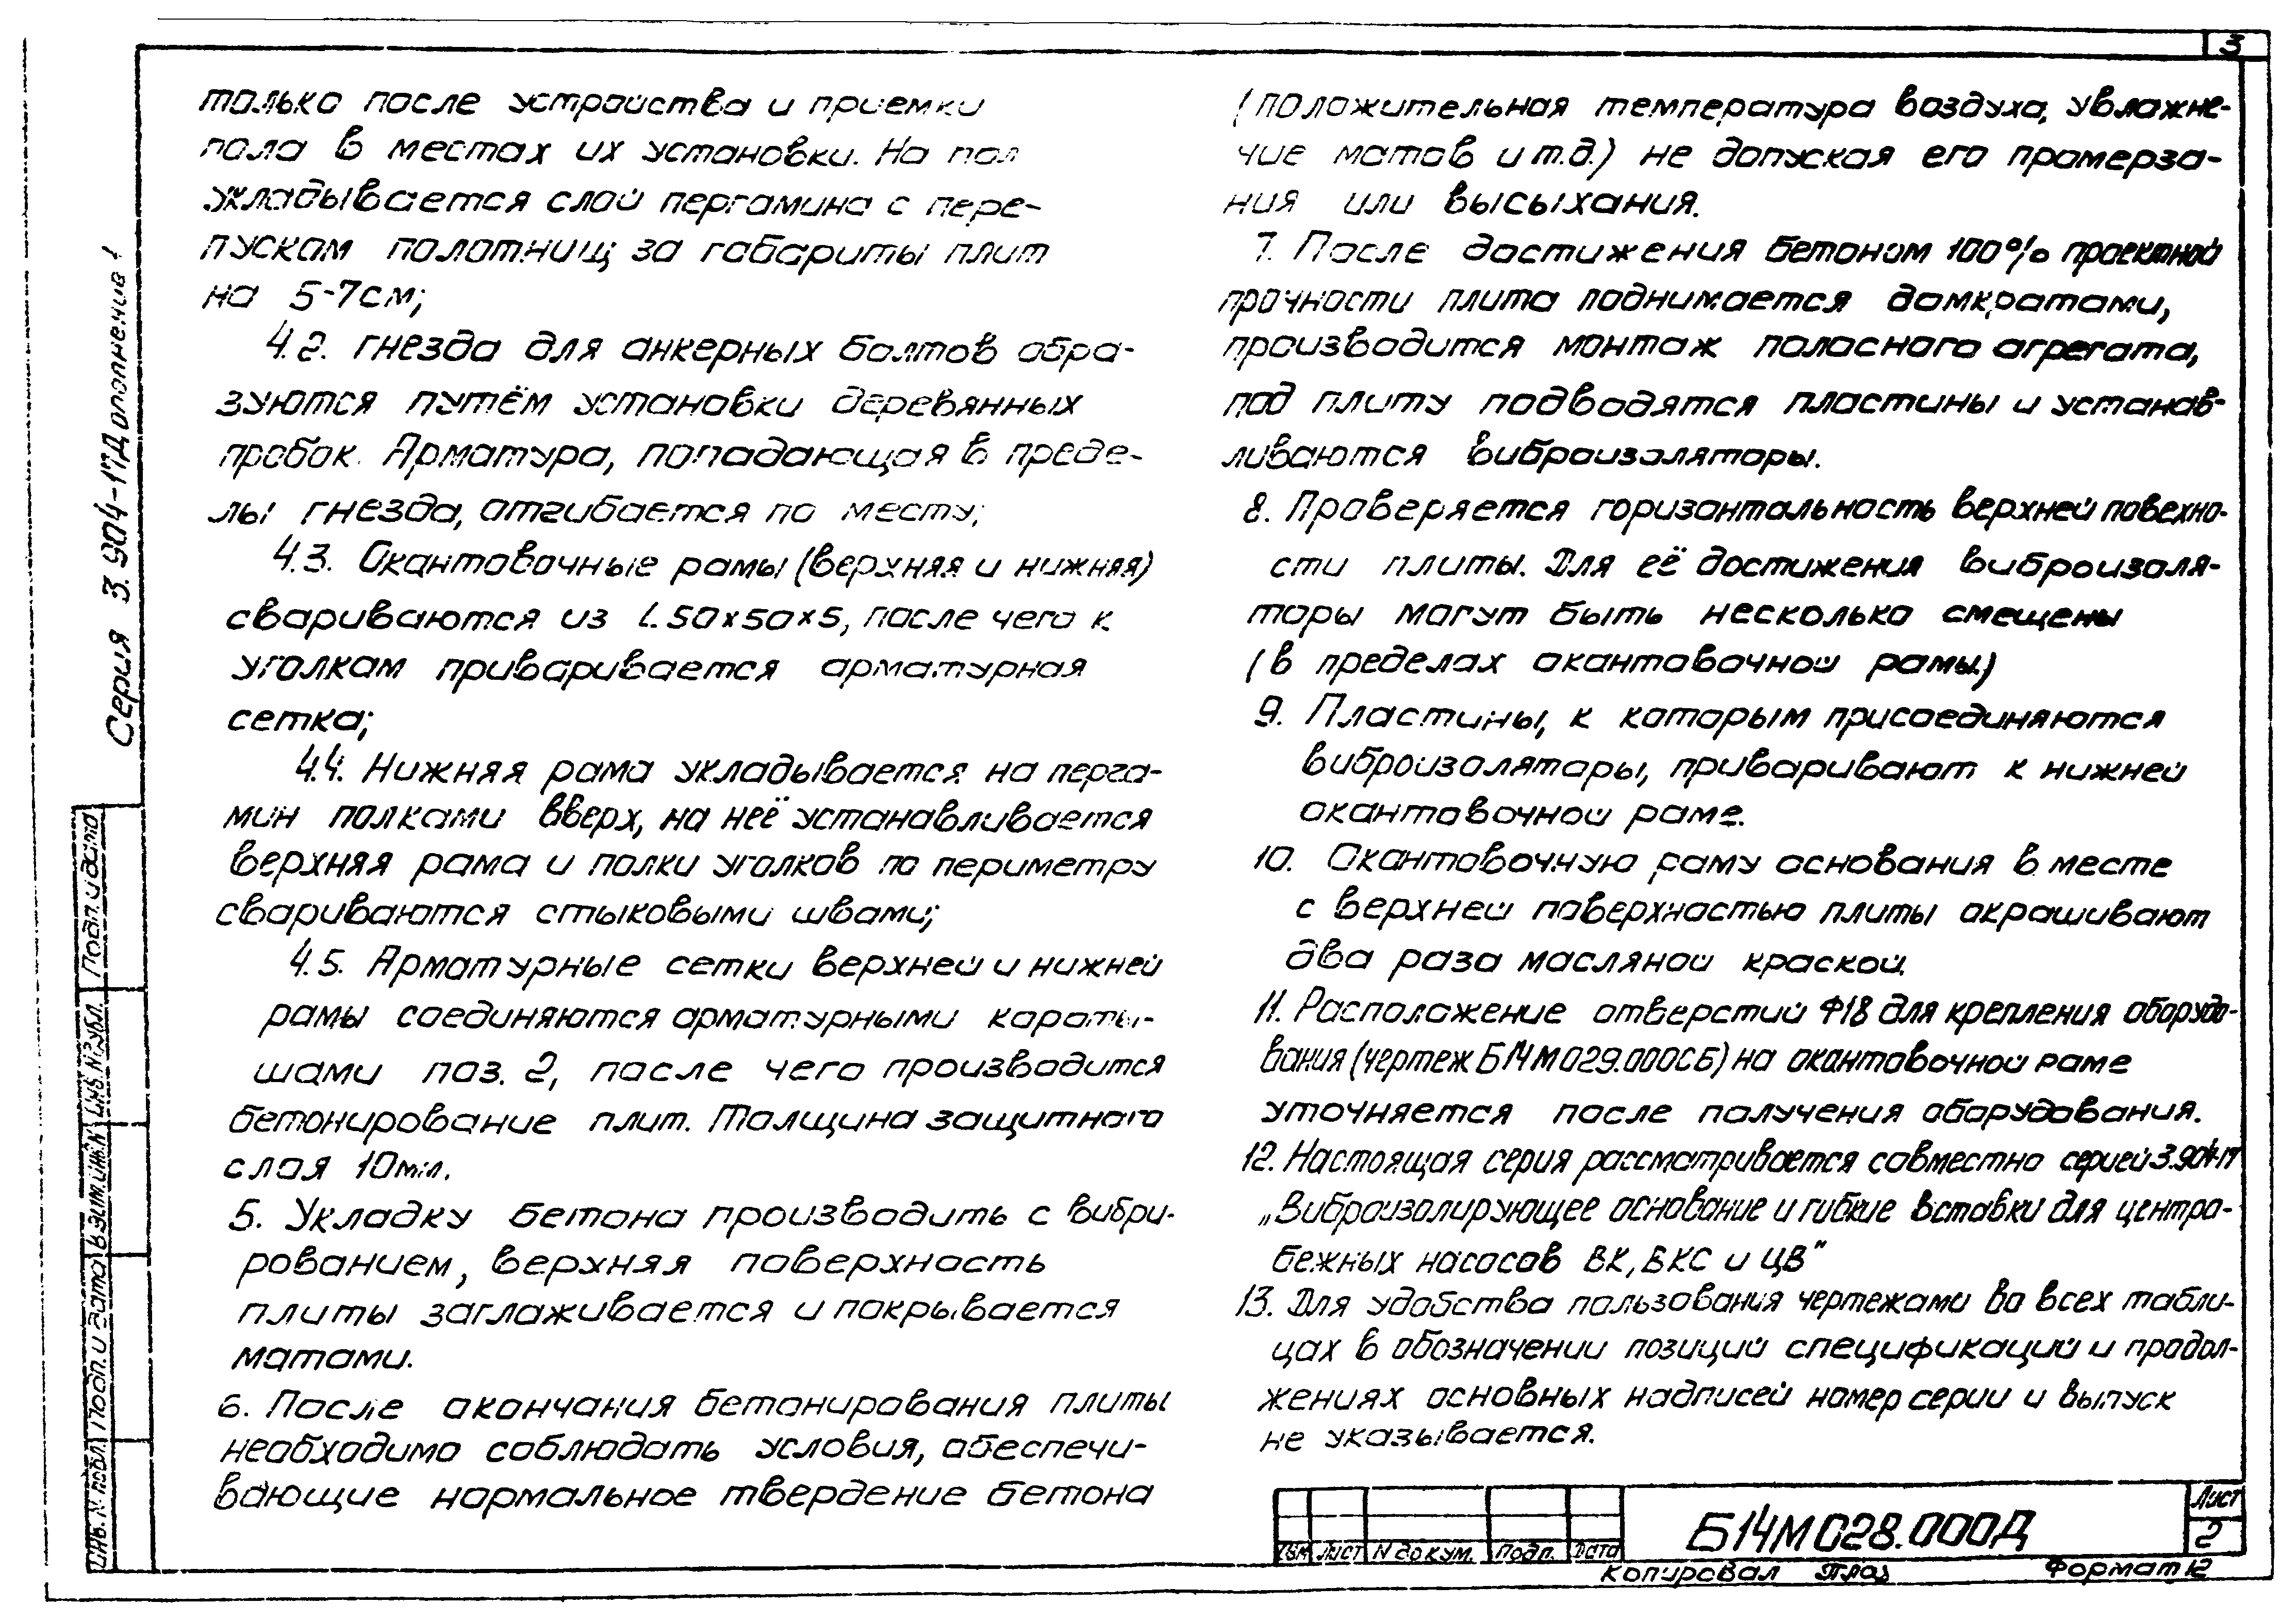 3
только после устройства и приемки
пола в местах их установки. На пол
укладывается слой пергамина с пере-
пуском полотнищ за габариты плит
на 5-7см;
4.2. гнезда для анкерных болтов обра-
зуются путём установки деревянных
пробок. Арматура, попадающая в преде-
лы гнезда, отгибается по месту;
4.3. Окантовочные рамы (верхняя и нижняя)
свариваются из L.50х50х5, после чего к
уголкам приваривается арматурная
сетка;
4.4. Нижняя рама укладывается на перга-
мин полками вверх, на неё устанавливается
верхняя рама и полки уголков по периметру
свариваются стыковыми швами;
4.5. Арматурные сетки верхней и нижней
рамы соединяются арматурными короты-
шами поз. 2, после чего производится
бетонирование плит. Толщина защитного
слоя 10мм.
5. Укладку бетона производить с вибри-
рованием, верхняя поверхность
плиты заглаживается и покрывается
матами.
6. После окончания бетонирования плиты
необходимо соблюдать условия, обеспечи-
вающие нормальное твердение бетона
(положительная температура воздуха, увлажне-
ние матов и т.д.) не допуская его промерза-
ния или высыхания.
7. После достижения бетоном 100% проектной
прочности плита поднимается домкратами,
производится монтаж полосного агрегата,
под плиту подводятся пластины и устанав-
ливаются виброизоляторы.
8. Проверяется горизонтальность верхней повехно-
сти плиты. Для её достижения виброизоля-
торы могут быть несколько смещены
(в пределах окантовочной рамы.)
9. Пластины, к которым присоединяются
виброизоляторы, приваривают к нижней
окантовочной раме.
10. Окантовочную раму основания в месте
с верхней поверхностью плиты окрашивают
два раза масляной краской.
11. Расположение отверстий Ф18 для крепления оборудо-
вания (чертеж Б14М029.000СБ) на окантовочной раме
уточняется после получения оборудования.
12. Настоящая серия рассматривается совместно серией 3.904-17
„Виброизолирующее основание и гибкие вставки для центро-
бежных насосов ВК, ВКС и ЦВ"
13. Для удобства пользования чертежами во всех табли-
цах в обозначении позиций спецификаций и продол-
жениях основных надписей номер серии и выпуск
не указывается.
Серия 3.904-17 Дополнение 1
Подп. и дата
Инв. № дубл.
Взам. инв. N
Подп. и дата
Инв. N подл.
Изм Лист N докум. Подп. Дата
Б14М028.000Д
Лист
2
Копировал
Формат 12